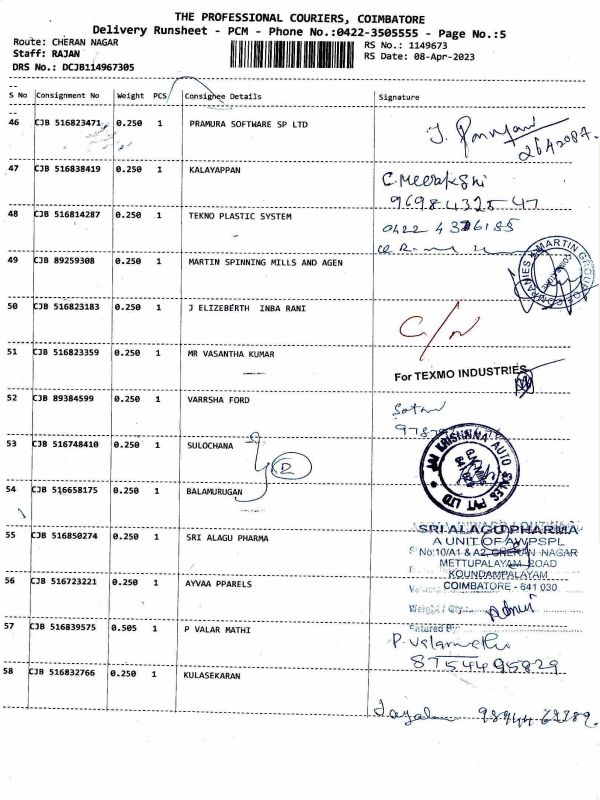 THE PROFESSIONAL COURIERS, COIMBATORE
Delivery Runsheet - PCM - Phone No.:0422-3505555 - Page No.:5
Route: CHERAN NAGAR
RS No.: 1149673
Staff: RAJAN
RS Date: 08-Apr-2023
DRS No.: DCJB114967305
S No Consignment No Weight PCS Consignee Details Signature
46 CJB 516823471 0.250 1 PRAMURA SOFTWARE SP LTD
47 CJB 516838419 0.250 1 KALAYAPPAN C.Meenakshi
9698432547
48 CJB 516814287 0.250 1 TEKNO PLASTIC SYSTEM 0422 4376185
49 CJB 89259308 0.250 1 MARTIN SPINNING MILLS AND AGEN MARTIN GROUP OF COMPANIES
50 CJB 516823183 0.250 1 J ELIZEBERTH INBA RANI C/N
51 CJB 516823359 0.250 1 MR VASANTHA KUMAR For TEXMO INDUSTRIES
52 CJB 89384599 0.250 1 VARRSHA FORD
53 CJB 516748410 0.250 1 SULOCHANA JAI KRISHNAA AUTO SALES PVT LTD
D
54 CJB 516658175 0.250 1 BALAMURUGAN
55 CJB 516850274 0.250 1 SRI ALAGU PHARMA SRI ALAGU PHARMA
A UNIT OF AWPSPL
No:10/A1 & A2, CHERAN NAGAR
METTUPALAYAM ROAD
KOUNDAMPALAYAM
COIMBATORE - 641 030
56 CJB 516723221 0.250 1 AYVAA PPARELS
Weight / Qty.:
Entured By:
57 CJB 516839575 0.505 1 P VALAR MATHI P.Valarmathi
8754495829
58 CJB 516832766 0.250 1 KULASEKARAN